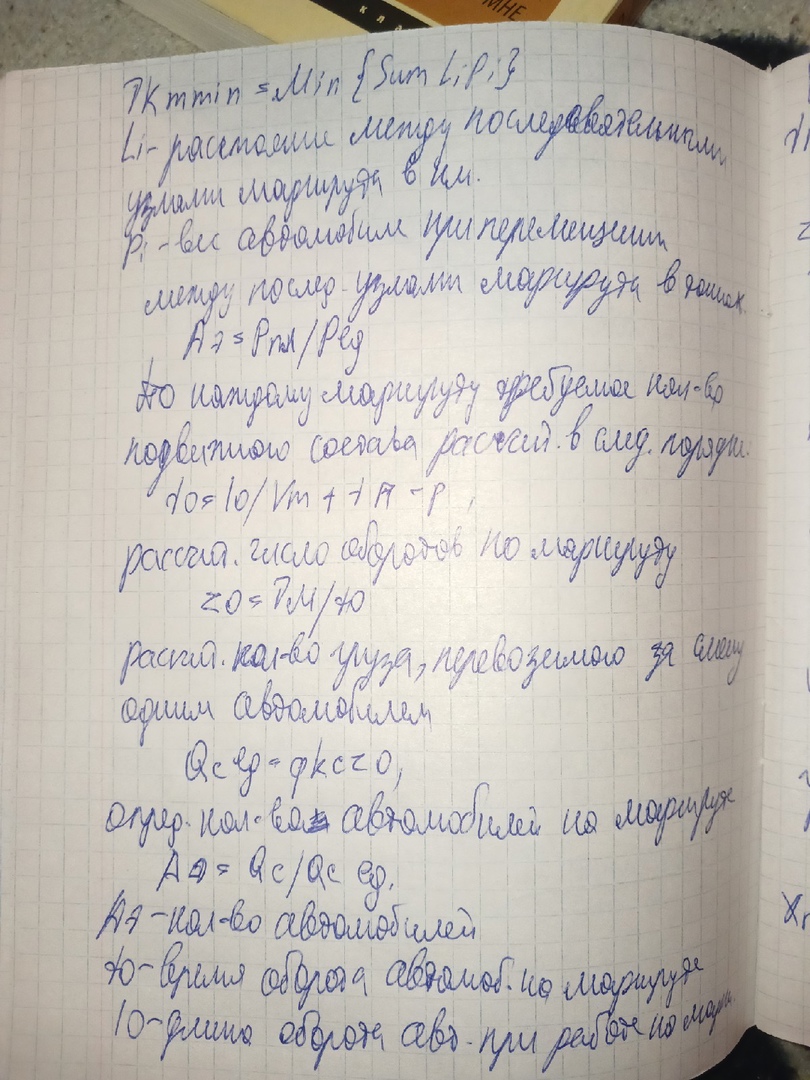 МНЕ
Ткmmin = Min {Sum LiPi}
Li - расстояние между последовательными
узлами маршрута в км.
Pi - вес автомобиля при перемещении
между послед. узлами маршрута в тоннах.
Аэ = Рпл/Ред
По каждому маршруту требуемое кол-во
подвижного состава рассчит. в след. порядке:
to = lo/Vm + t п - р,
рассчит. число оборотов по маршруту
zo = Тм/to
рассчит. кол-во груза, перевозимого за смену
одним автомобилем
Qс ед = qkczo,
опред. кол-во автомобилей на маршруте
Аэ = Qc/Qc ед.
Аэ - кол-во автомобилей
to - время оборота автомоб. на маршруте
lo - длина оборота авт. при работе на марш.